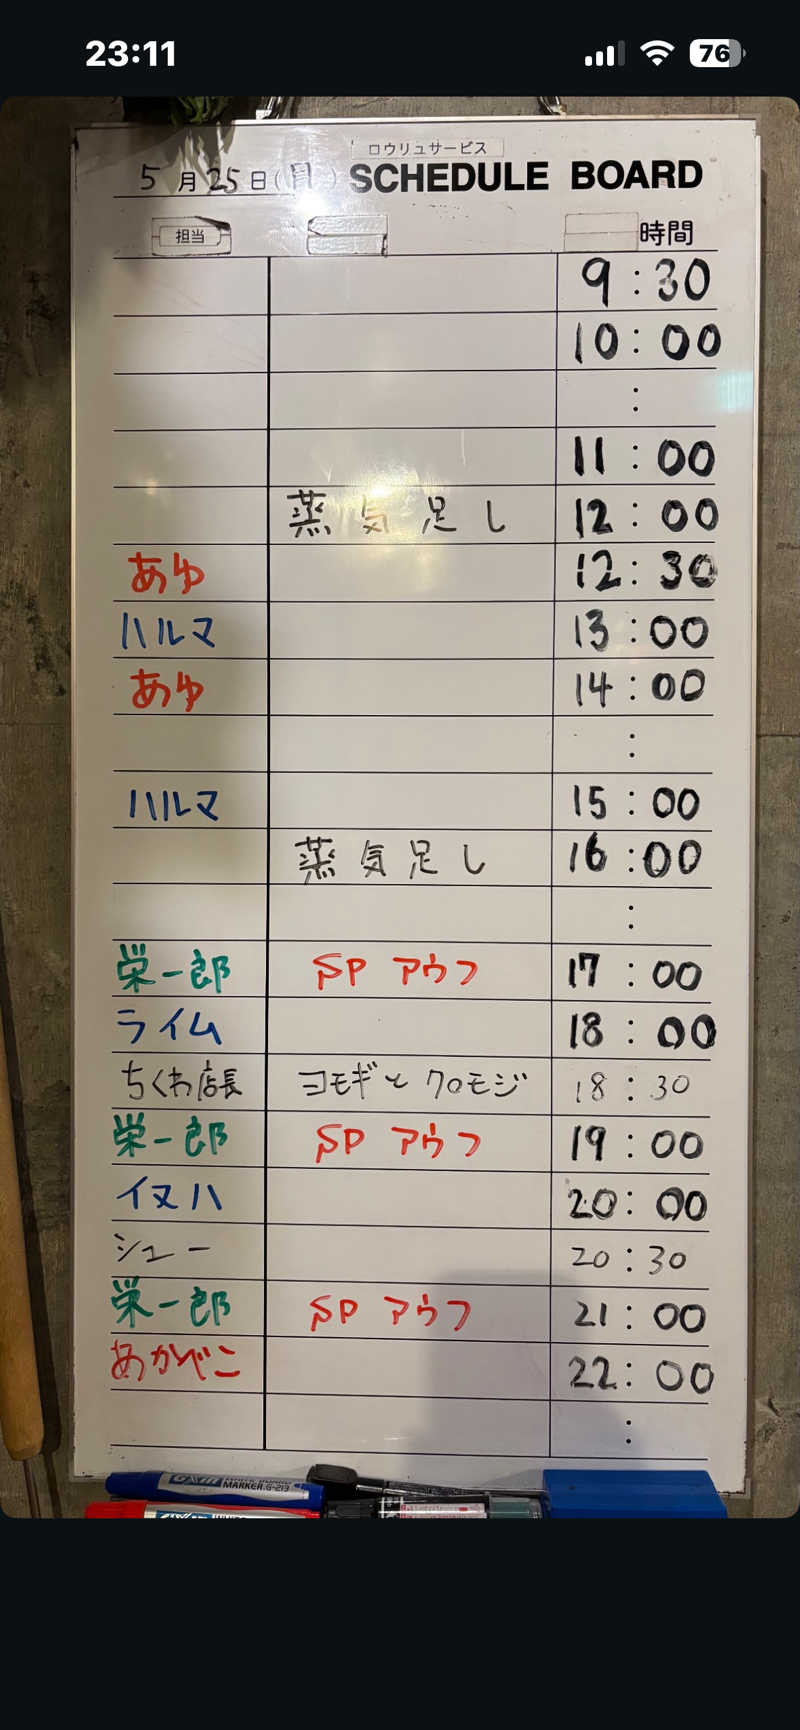 23:11
76
ロウリュサービス
5月25日(月) SCHEDULE BOARD
担当 時間
9:30
10:00
:
11:00
蒸気足し 12:00
あゆ 12:30
ハルマ 13:00
あゆ 14:00
:
ハルマ 15:00
蒸気足し 16:00
:
栄一郎 SP アウフ 17:00
ライム 18:00
ちくわ店長 ヨモギとクロモジ 18:30
栄一郎 SP アウフ 19:00
イヌハ 20:00
シュー 20:30
栄一郎 SP アウフ 21:00
あかべこ 22:00
:
MARKER